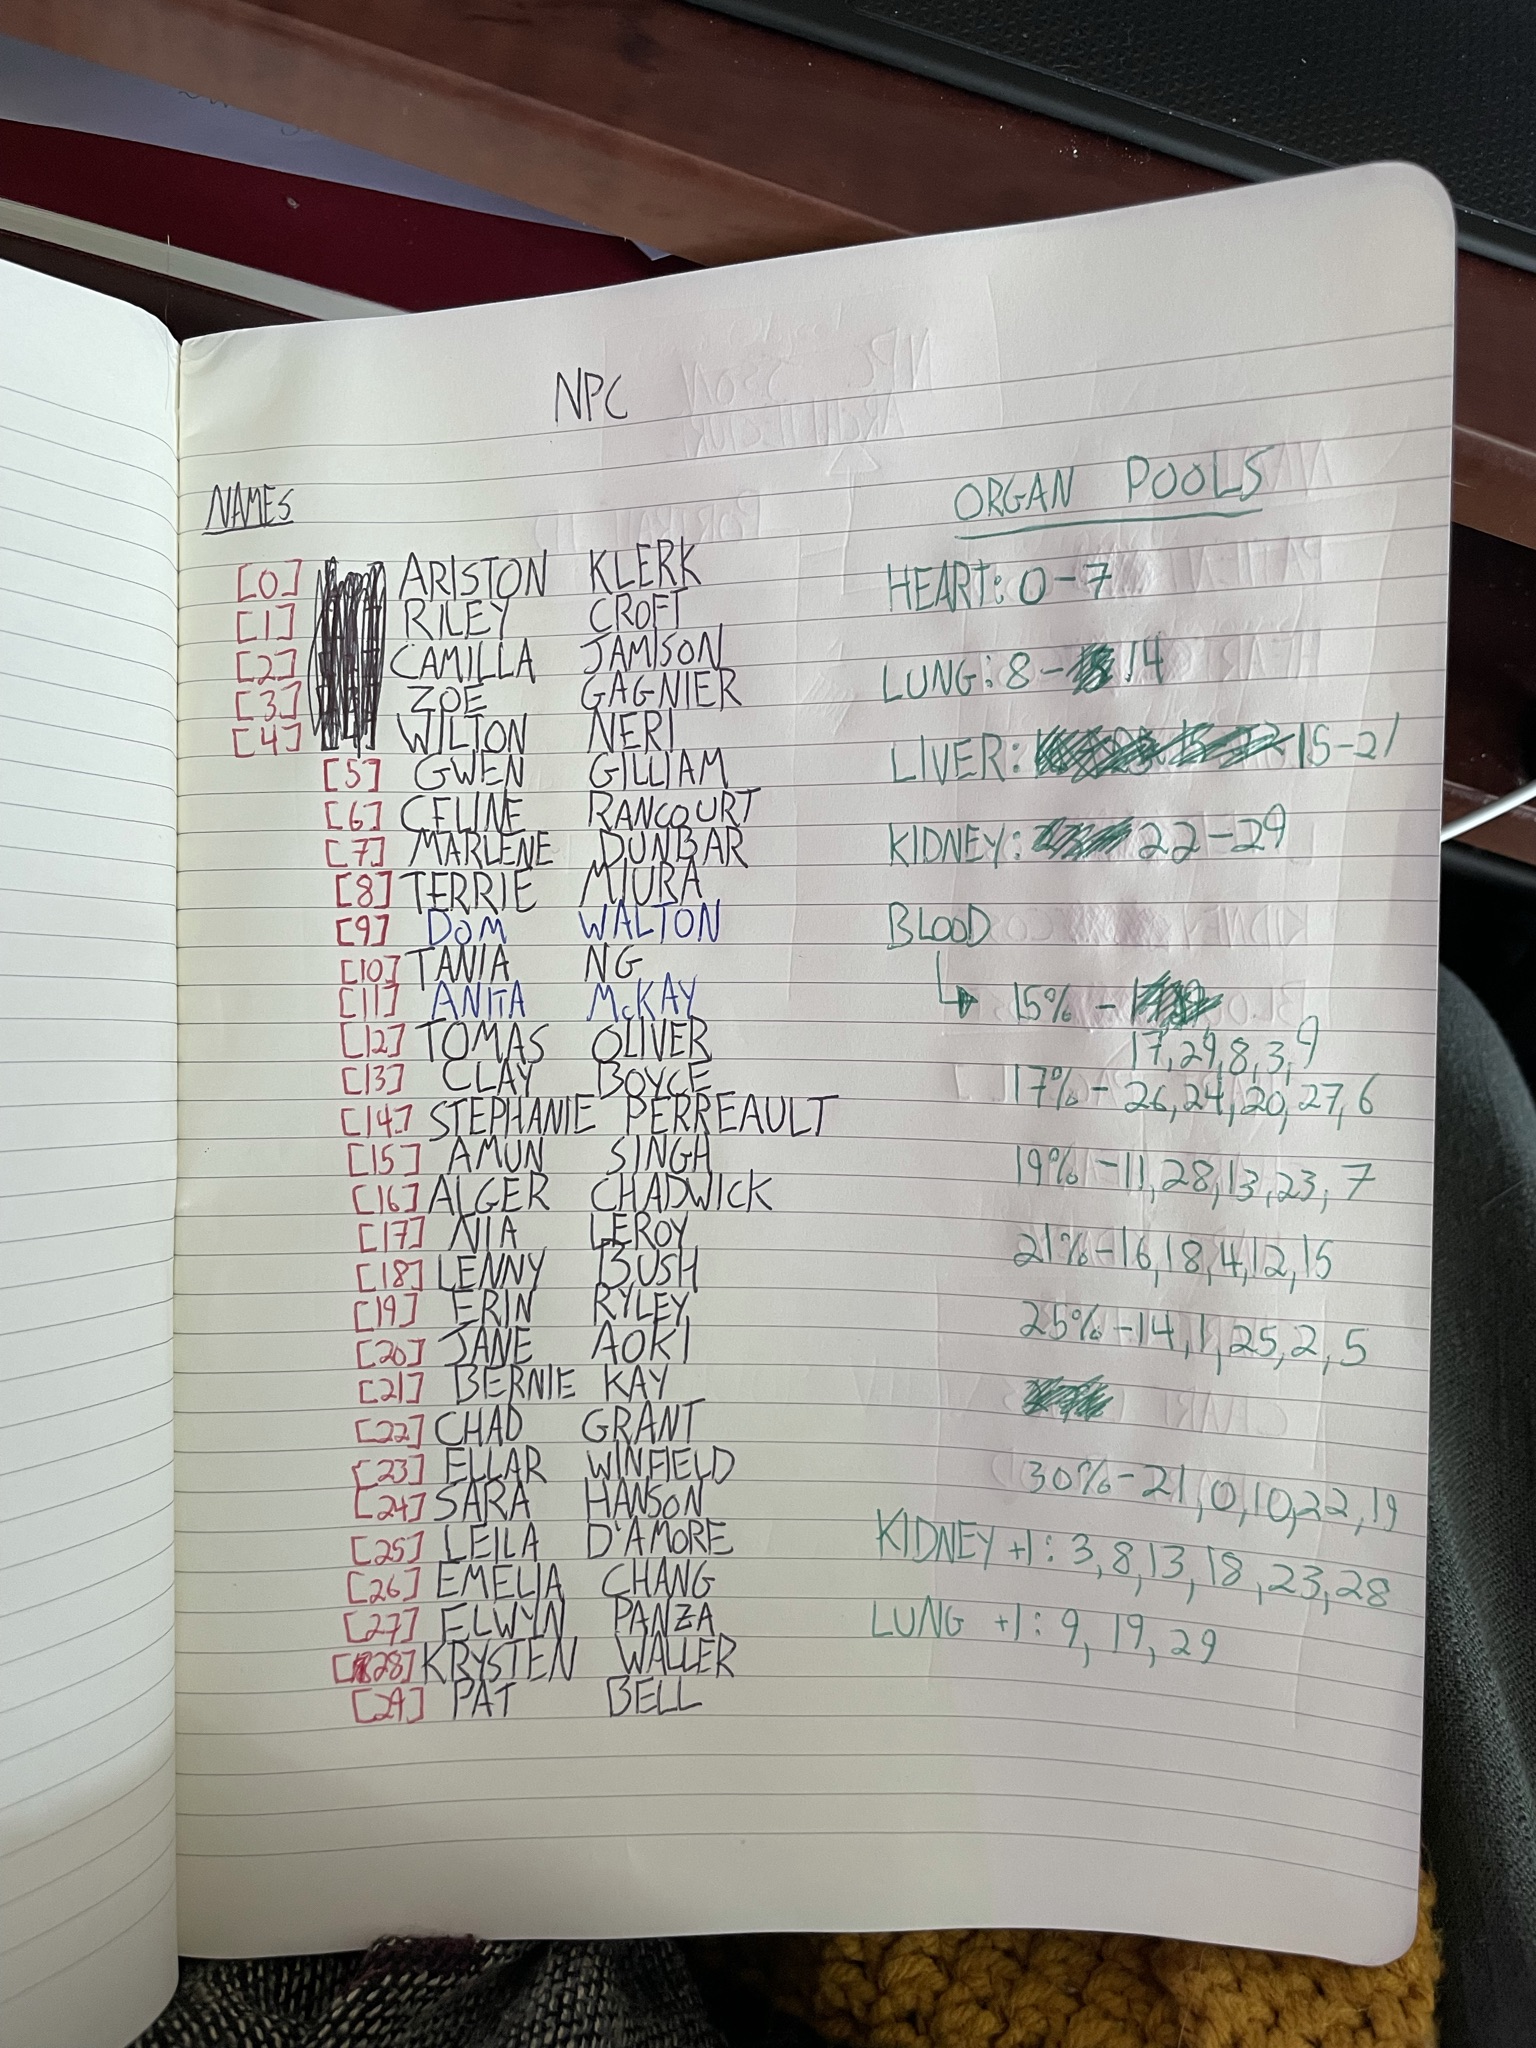 NPC
NAMES
[0] ARISTON KLERK
[1] RILEY CROFT
[2] CAMILLA JAMISON
[3] ZOE GAGNIER
[4] WILTON NERI
[5] GWEN GILLIAM
[6] CELINE RANCOURT
[7] MARLENE DUNBAR
[8] TERRIE MIURA
[9] DOM WALTON
[10] TANIA NG
[11] ANITA McKAY
[12] TOMAS OLIVER
[13] CLAY BOYCE
[14] STEPHANIE PERREAULT
[15] AMUN SINGH
[16] ALGER CHADWICK
[17] NIA LEROY
[18] LENNY BUSH
[19] ERIN RYLEY
[20] JANE AOKI
[21] BERNIE KAY
[22] CHAD GRANT
[23] ELLAR WINFIELD
[24] SARA HANSON
[25] LEILA D'AMORE
[26] EMELIA CHANG
[27] ELWYN PANZA
[28] KRYSTEN WALLER
[29] PAT BELL
ORGAN POOLS
HEART: 0-7
LUNG: 8- 14
LIVER: 15-21
KIDNEY: 22-29
BLOOD
15% -
17, 29, 8, 3, 9
17% - 26, 24, 20, 27, 6
19% - 11, 28, 13, 23, 7
21% - 16, 18, 4, 12, 15
25% - 14, 1, 25, 2, 5
30% - 21, 0, 10, 22, 19
KIDNEY +1: 3, 8, 13, 18, 23, 28
LUNG +1: 9, 19, 29